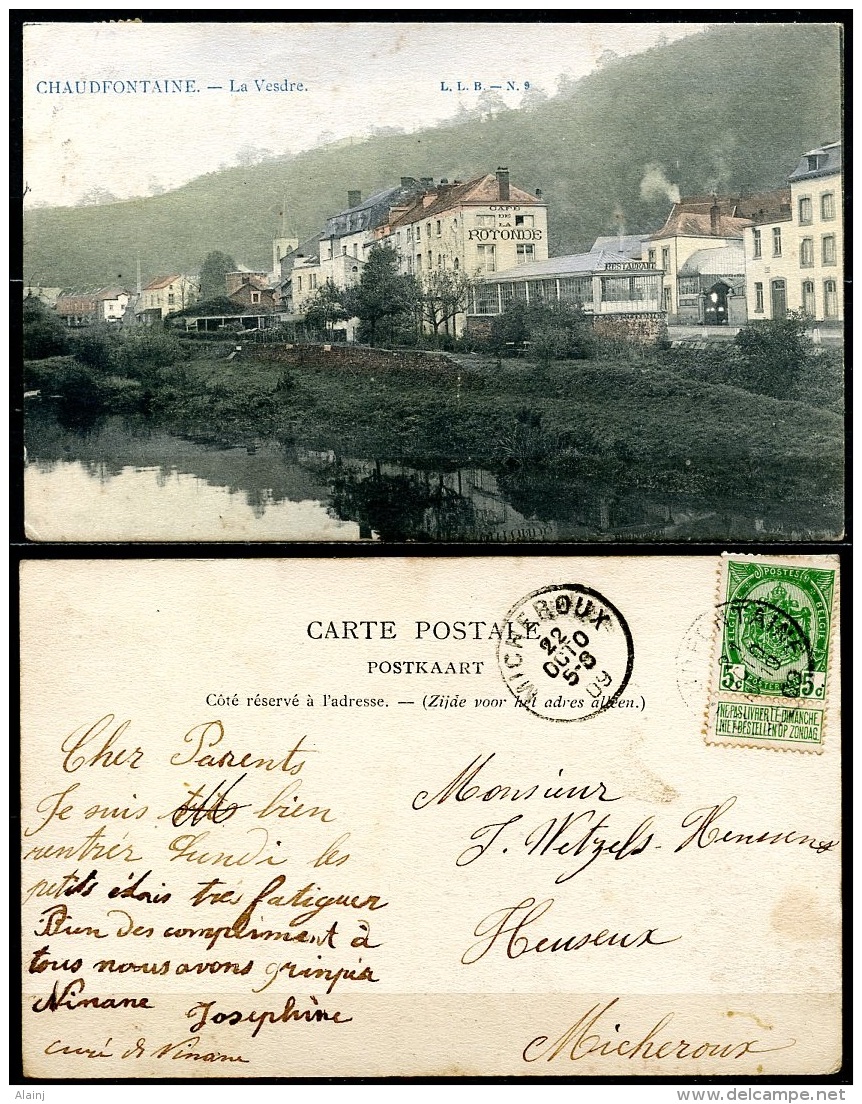 CHAUDFONTAINE. — La Vesdre.
L. L. B. — N. 9
CAFÉ
DE LA
ROTONDE
RESTAURANT
CARTE POSTALE
POSTKAART
Côté réservé à l'adresse. — (Zijde voor het adres alleen.)
MICHEROUX
22
OCTO
5-8
09
POSTES
BELGIQUE
BELGIË
5c 5c
POSTERIJEN
NE PAS LIVRER LE DIMANCHE
NIET BESTELLEN OP ZONDAG
Cher Parents
Je suis bien
rentrér Lundi les
petits étais très fatiguer
Bien des compliment à
tous nous avons grinpér
Ninane
Josephine
curé de Ninane
Monsieur
J. Wetzels-Henusens
Heuseux
Micheroux
Alainj
delcampe.net